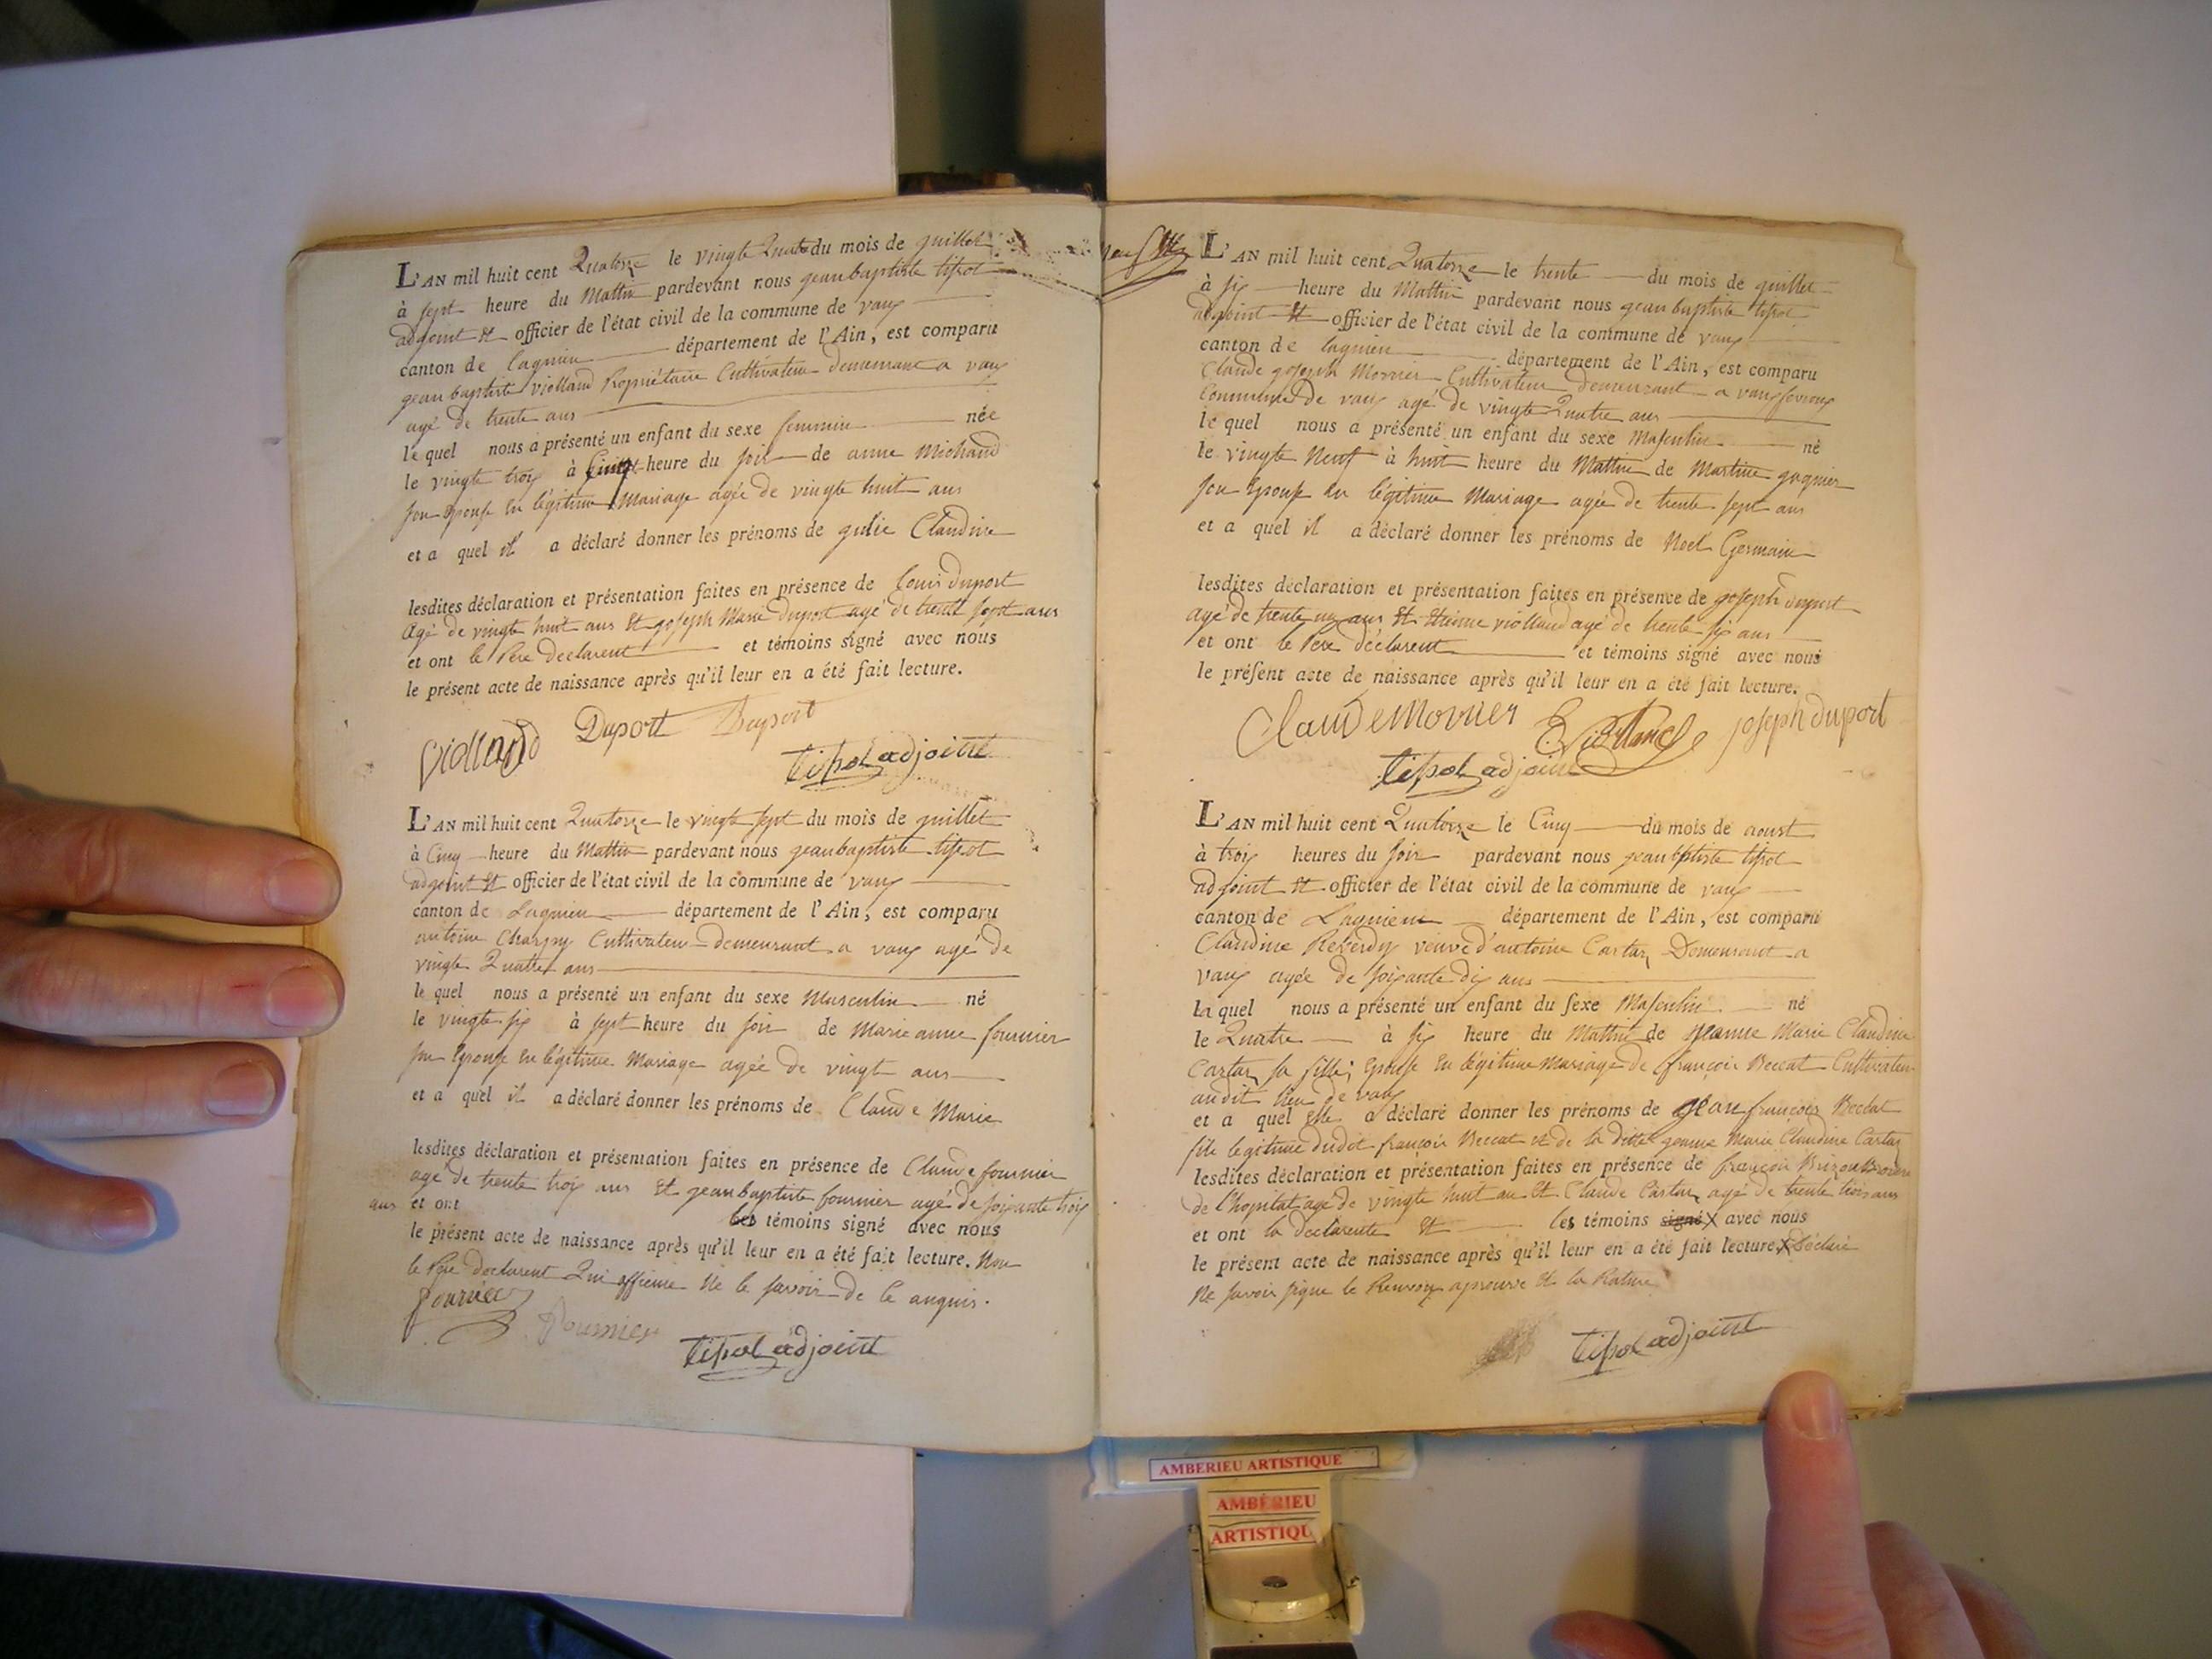 L'AN mil huit cent Quatorze le vingte Quatre du mois de juillet
à sept heure du Mattin pardevant nous jean baptiste tissot
adjoint et officier de l'état civil de la commune de vaux
canton de lagnieu département de l'Ain, est comparu
jean baptiste violland Propriétaire Cultivateur demeurant a vaux
agé de trente ans
le quel nous a présenté un enfant du sexe feminin née
le vingte trois à Cinq heure du soir de anne Michaud
son Epouse en légitime Mariage agée de vingte huit ans
et a quel il a déclaré donner les prénoms de julie Claudine
lesdites déclaration et présentation faites en présence de louis duport
agé de vingte huit ans et joseph Marie duport agé de trente sept ans
et ont le Pere declarent et témoins signé avec nous
le présent acte de naissance après qu'il leur en a été fait lecture.
violland Duport Duport
tissot adjoint
L'AN mil huit cent Quatorze le vingte sept du mois de juillet
à Cinq heure du Mattin pardevant nous jean baptiste tissot
adjoint et officier de l'état civil de la commune de vaux
canton de Lagnieu département de l'Ain, est comparu
antoine Charpy Cultivateur demeurant a vaux agé de
vingte Quatre ans
le quel nous a présenté un enfant du sexe Masculin né
le vingte six à sept heure du soir de Marie anne fournier
son Epouse en légitime Mariage agée de vingt ans
et a quel il a déclaré donner les prénoms de Claude Marie
lesdites déclaration et présentation faites en présence de Claude fournier
agé de trente trois ans et jean baptiste fournier agé de soixante trois
ans et ont les témoins signé avec nous
le présent acte de naissance après qu'il leur en a été fait lecture. Non
le Pere declarent Qui affirme Ne le savoir de le anquis.
fournier
fournier
tissot adjoint
L'AN mil huit cent Quatorze le trente du mois de juillet
à six heure du Mattin pardevant nous jean baptiste tissot
adjoint et officier de l'état civil de la commune de vaux
canton de lagnieu département de l'Ain, est comparu
Claude joseph Mornier Cultivateur demeurant a vaux fevroux
Commune De vaux agé de vingte Quatre ans
le quel nous a présenté un enfant du sexe Masculin né
le vingte Neuf à huit heure du Mattin de Martine gagnier
son Epouse en légitime Mariage agée de trente sept ans
et a quel il a déclaré donner les prénoms de Noel Germain
lesdites déclaration et présentation faites en présence de joseph duport
agé de trente un ans et Etienne violland agé de trente six ans
et ont le Pere déclarent et témoins signé avec nous
le présent acte de naissance après qu'il leur en a été fait lecture.
Claude Mornier E. violland joseph duport
tissot adjoint
L'AN mil huit cent Quatorze le Cinq du mois de aoust
à trois heures du soir pardevant nous jean bptiste tissot
adjoint et officier de l'état civil de la commune de vaux
canton de Lagnieu département de l'Ain, est comparu
Claudine Reverdy veuve d'antoine Cartaz Demeurant a
vaux agée de soixante dix ans
la quel nous a présenté un enfant du sexe Masculin né
le Quatre à six heure du Mattin de jeanne Marie Claudine
Cartaz sa fille; Epouse en légitime Mariage de françois Beccat Cultivateur
audit lieu de vaux
et a quel elle a déclaré donner les prénoms de jean françois Beccat
fils legitime dudit françois Beccat et de la ditte jeanne Marie Claudine Cartaz
lesdites déclaration et présentation faites en présence de françois
de l'hopital agé de vingte huit an et Claude Cartaz agé de trente trois ans
et ont la declarente et les témoins signé X avec nous
le présent acte de naissance après qu'il leur en a été fait lecture X Déclaré
Ne savoir signe le Renvoy aprouve et la Rature
tissot adjoint
AMBERIEU ARTISTIQUE
AMBÉRIEU
ARTISTIQU